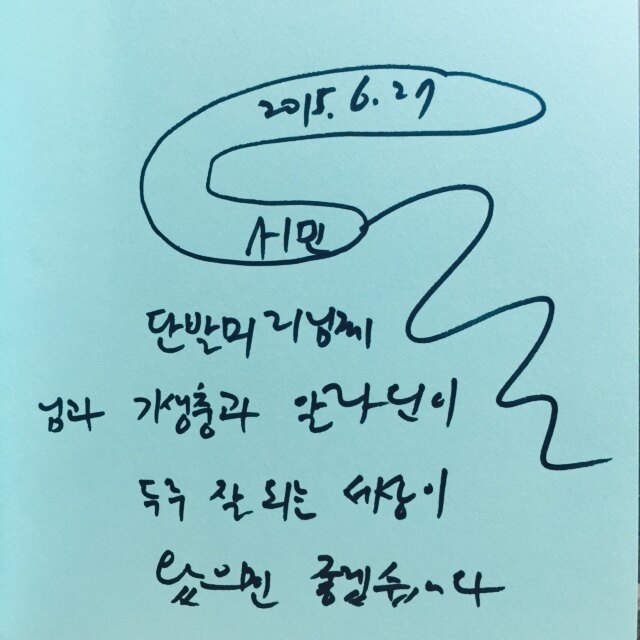 2015. 6. 27
서민
단발머리님께
님과 기생충과 알라딘이
두루 잘 되는 세상이
왔으면 좋겠습니다